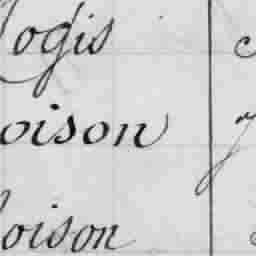 Logis
oison
oison